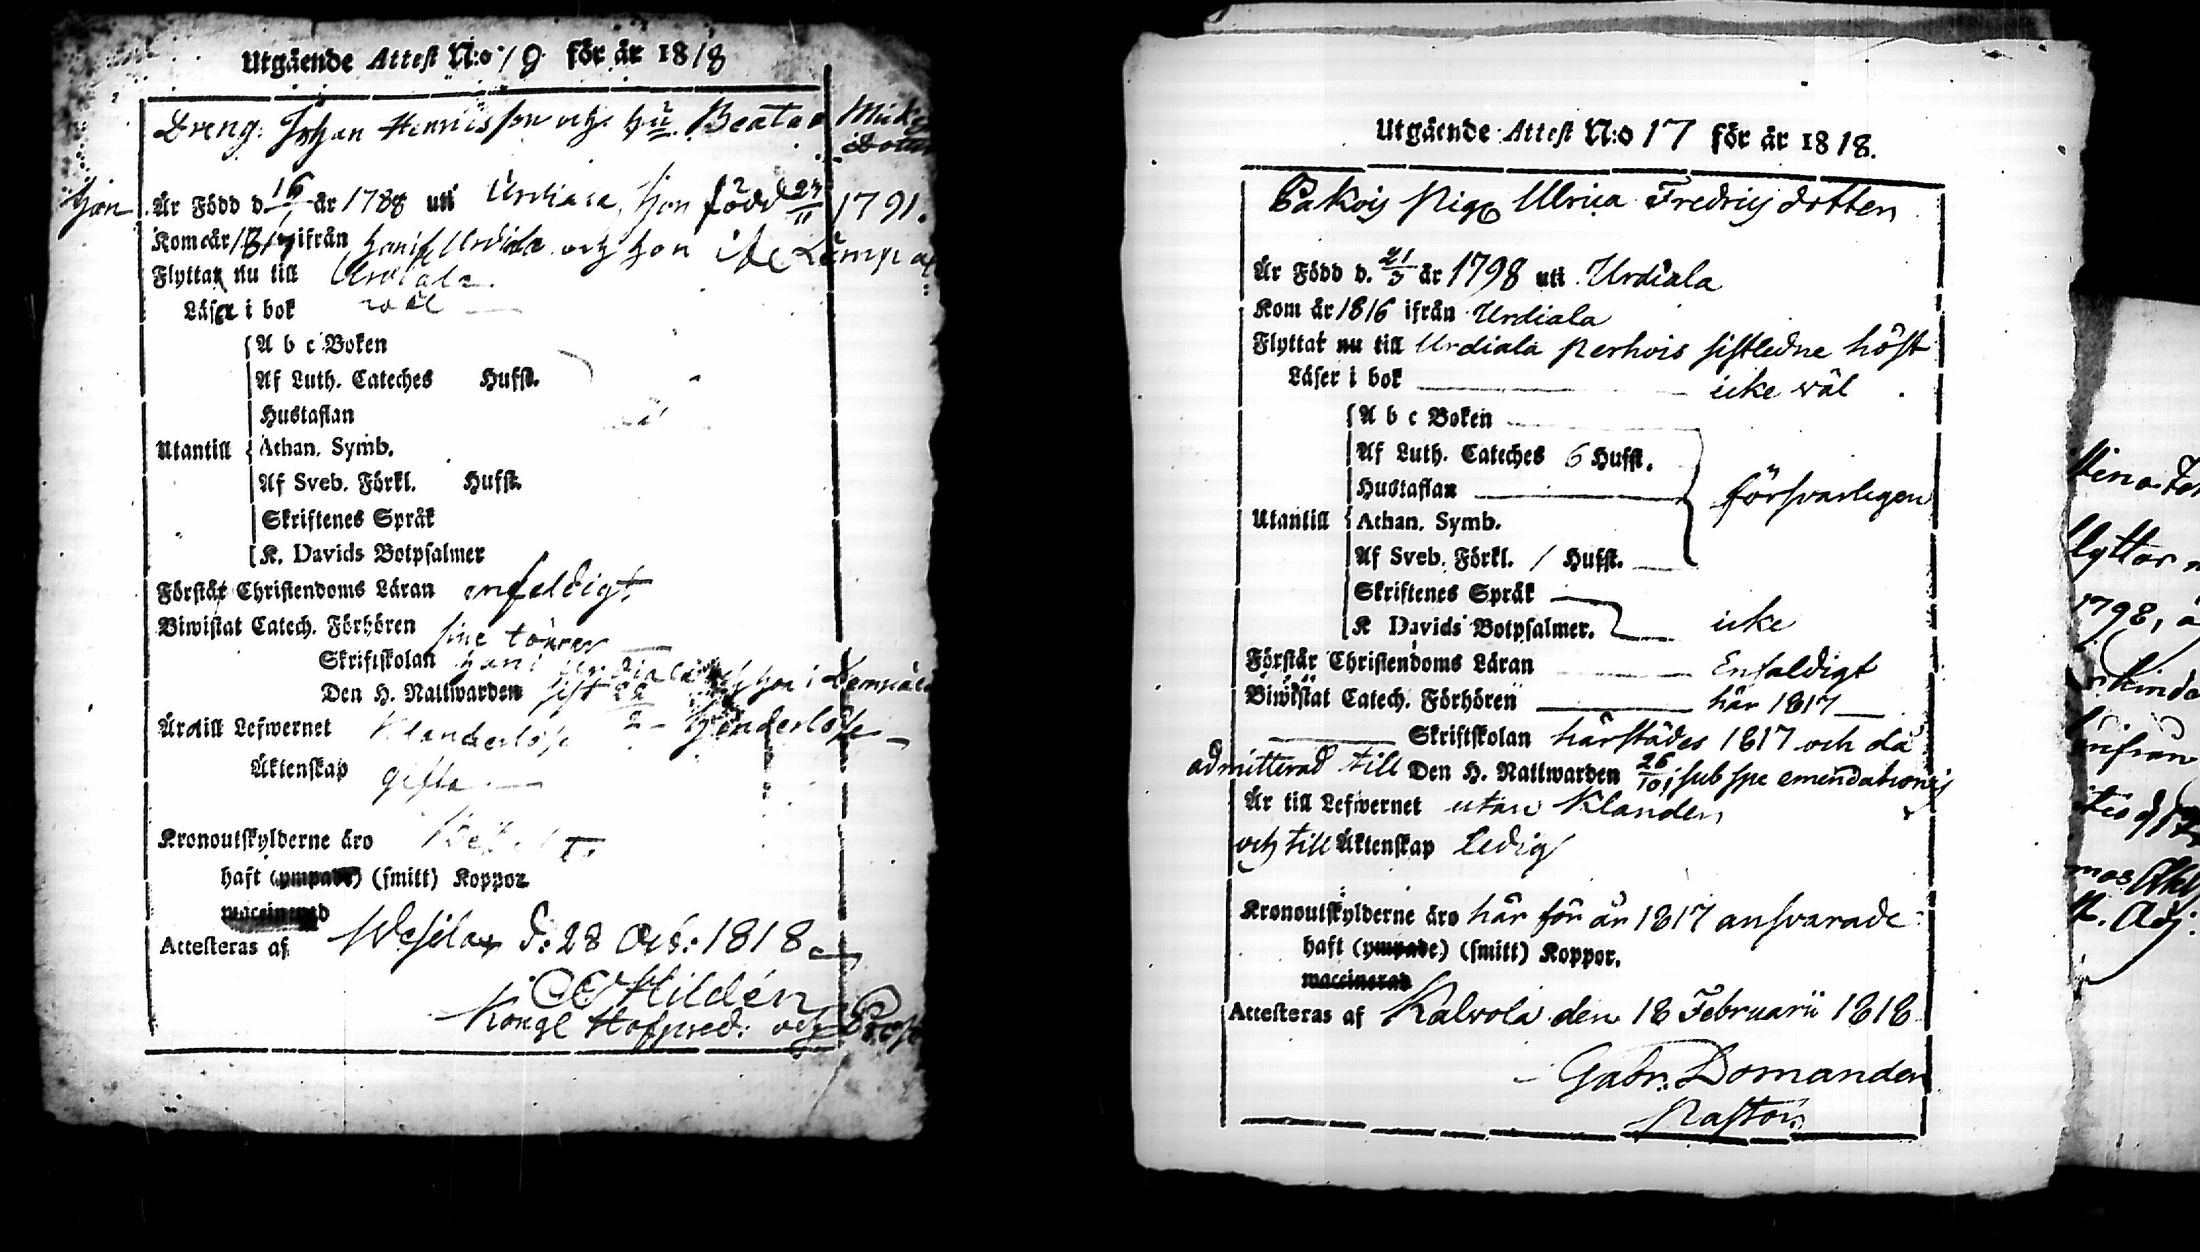 Utgående Attest N:o 19 för år 1818
Dreng. Johan Hennicsson och hu Beata Mick
dotter
han Är Född d. 16 år 1788 uti Urdiala, hon född 24/11 1791.
Kom år 1817 ifrån han if. Urdiala och hon if Lempä
Flyttar nu till Urdiala
Läser i bok wäl
A b c Boken
Af Luth. Cateches Hufst.
Hustaflan
Utantill Athan. Symb.
Af Sveb. Förkl. Hufst.
Skriftenes Språk
K. Davids Botpsalmer
Förstår Christendoms Läran enfaldigt
Biwistat Catech. Förhören sine
Skriftskolan han i Urdiala och hon i Lempälä
Den H. Nattwarden sist
Äro till Lefwernet Klanderlöse hinderlöse
Äktenskap gifta
Kronoutskylderne äro Betalte
haft (smitt) Koppor
Attesteras af Wesilax d: 28 Oct: 1818
Hildén
Kongl Hofpred: och Prost
Utgående Attest N:o 17 för år 1818.
Pakois Piga Ulrica Fredricsdotter
Är Född d. 21/3 år 1798 uti Urdiala
Kom år 1816 ifrån Urdiala
Flyttat nu till Urdiala Perhois sistledne höst
Läser i bok icke wäl
A b c Boken
Af Luth. Cateches 6 Hufst.
Hustaflan försvarligen
Utantill Athan. Symb.
Af Sveb. Förkl. 1 Hufst.
Skriftenes Språk
K Davids Botpsalmer. icke
Förstår Christendoms Läran Enfaldigt
Biwistat Catech. Förhören här 1817
Skriftskolan härstädes 1817 och då
admitterad till Den H. Nattwarden 26/10, sub spe emendationis
Är till Lefwernet utan Klander,
och till Äktenskap Ledig
Kronoutskylderne äro här för år 1817 ansvarade
haft (ympade) (smitt) Koppor.
waccinerad
Attesteras af Kalvola den 18 Februarii 1818
Gabr. Domander
Pastor
1798,